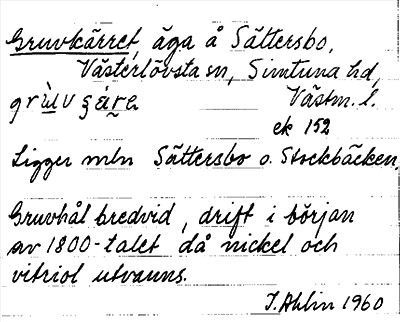 Gruvkärret, äga å Sättersbo,
Västerlövsta sn, Simtuna hd,
Västm. l.
ek 152
Ligger mln Sättersbo o. Stockbäcken.
Gruvhål bredvid, drift i början
av 1800-talet då nickel och
vitriol utvanns.
I. Ahlin 1960